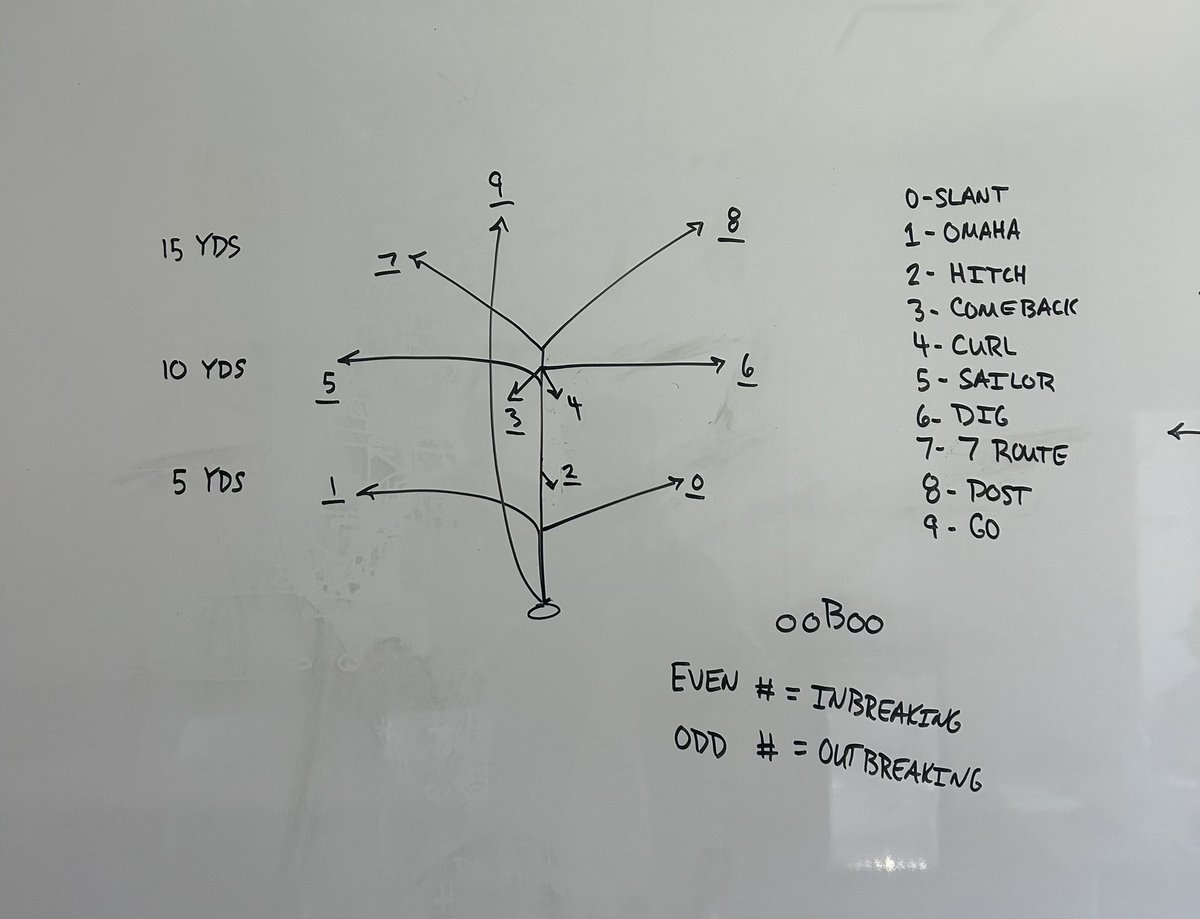 9
8
15 YDS
7
10 YDS
5
6
3
4
5 YDS
1
2
0
0-SLANT
1-OMAHA
2- HITCH
3- COMEBACK
4-CURL
5-SAILOR
6-DIG
7-7 ROUTE
8-POST
9-GO
OOBOO
EVEN # = INBREAKING
ODD # = OUTBREAKING